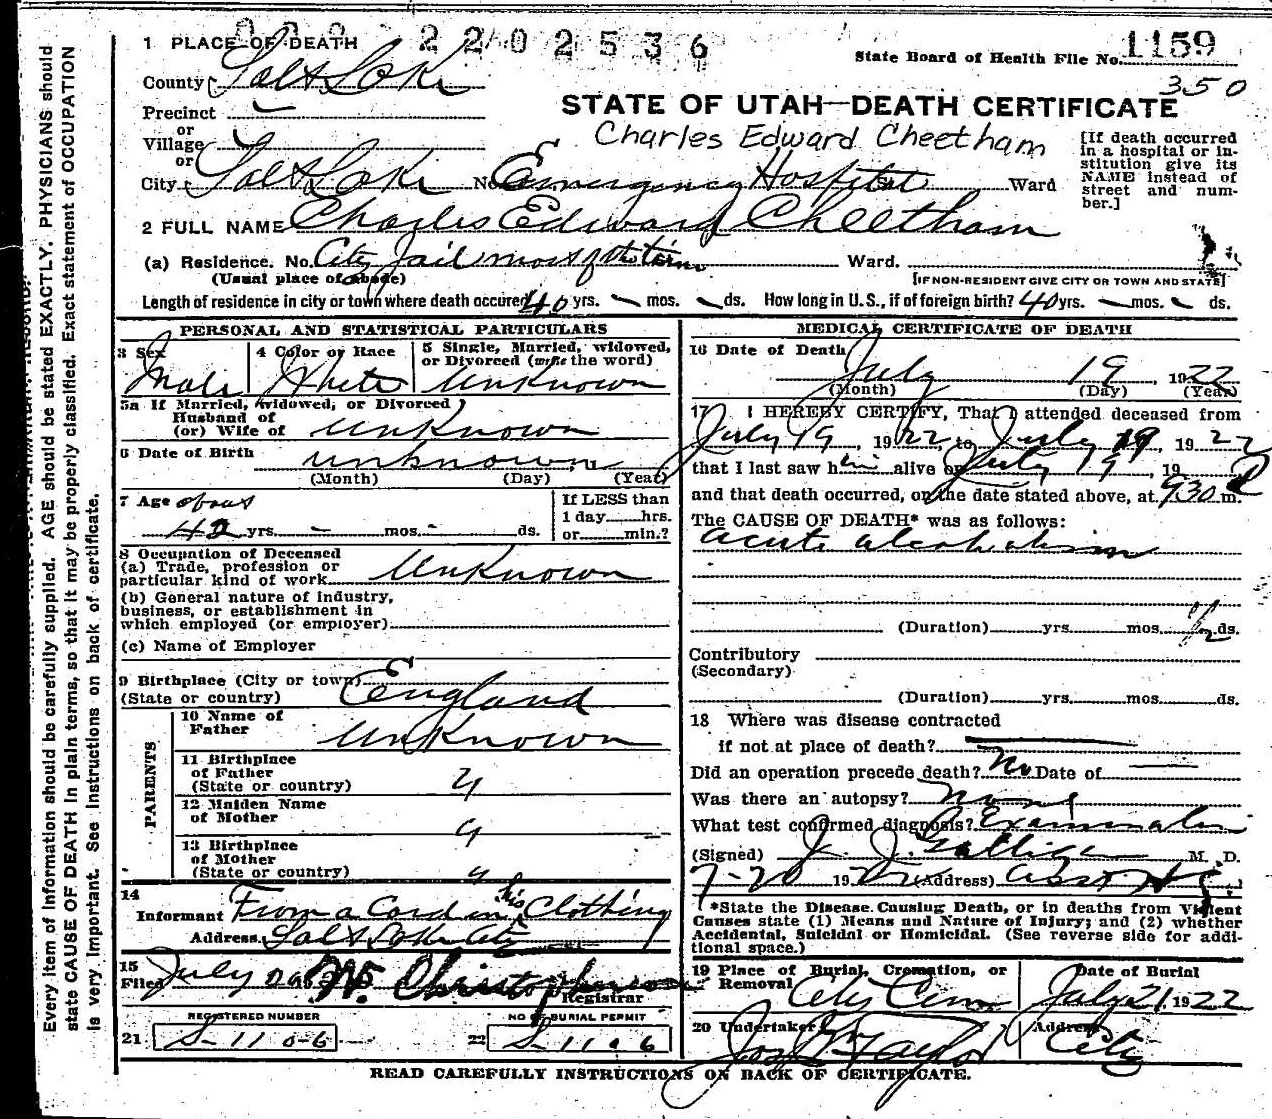 2202536
1 PLACE OF DEATH
State Board of Health File No. 1159
350
County Salt Lake
Precinct
or
Village
or
STATE OF UTAH—DEATH CERTIFICATE
Charles Edward Cheetham
[If death occurred in a hospital or institution give its NAME instead of street and number.]
City Salt Lake No. Emergency Hospital St. Ward
2 FULL NAME Charles Edward Cheetham
(a) Residence. No. City Jail most of the time Ward.
(Usual place of abode) [IF NON-RESIDENT GIVE CITY OR TOWN AND STATE]
Length of residence in city or town where death occured 40 yrs. — mos. — ds. How long in U.S., if of foreign birth? 40 yrs. — mos. — ds.
PERSONAL AND STATISTICAL PARTICULARS
3 Sex
Male
4 Color or Race
White
5 Single, Married, widowed, or Divorced (write the word)
Unknown
5a If Married, widowed, or Divorced
Husband of
(or) Wife of Unknown
6 Date of Birth unknown
(Month) (Day) (Year)
7 Age about
42 yrs. — mos. - ds.
If LESS than
1 day hrs.
or min.?
8 Occupation of Deceased
(a) Trade, profession or
particular kind of work Unknown
(b) General nature of industry,
business, or establishment in
which employed (or employer)
(c) Name of Employer
9 Birthplace (City or town)
(State or country) England
PARENTS
10 Name of
Father Unknown
11 Birthplace
of Father
(State or country) "
12 Maiden Name
of Mother "
13 Birthplace
of Mother
(State or country) "
14
Informant From a Card in his Clothing
Address Salt Lake City
15
Filed July W. Christopherson
Registrar
REGISTERED NUMBER NO OF BURIAL PERMIT
21 S-1106 22 S-1106
MEDICAL CERTIFICATE OF DEATH
16 Date of Death
July 19, 1922
(Month) (Day) (Year)
17 I HEREBY CERTIFY, That I attended deceased from
July 19, 1922 to July 19, 1922
that I last saw him alive on July 19, 19
and that death occurred, on the date stated above, at 930 m.
The CAUSE OF DEATH* was as follows:
acute alcoholism
(Duration) yrs. mos. 1/2 ds.
Contributory
(Secondary)
(Duration) yrs. mos. ds.
18 Where was disease contracted
if not at place of death?
Did an operation precede death? No Date of —
Was there an autopsy? None
What test confirmed diagnosis? Examination
(Signed) J. J. Galligan M. D.
7-20 1922 (Address)
*State the Disease Causing Death, or in deaths from Violent
Causes state (1) Means and Nature of Injury; and (2) whether
Accidental, Suicidal or Homicidal. (See reverse side for additional space.)
19 Place of Burial, Cremation, or
Removal City Cem
Date of Burial
July 21, 1922
20 Undertaker
Jos Wm Taylor
Address
City
READ CAREFULLY INSTRUCTIONS ON BACK OF CERTIFICATE.
Every item of information should be carefully supplied. AGE should be stated EXACTLY. PHYSICIANS should
state CAUSE OF DEATH in plain terms, so that it may be properly classified. Exact statement of OCCUPATION
is very important. See Instructions on back of certificate.